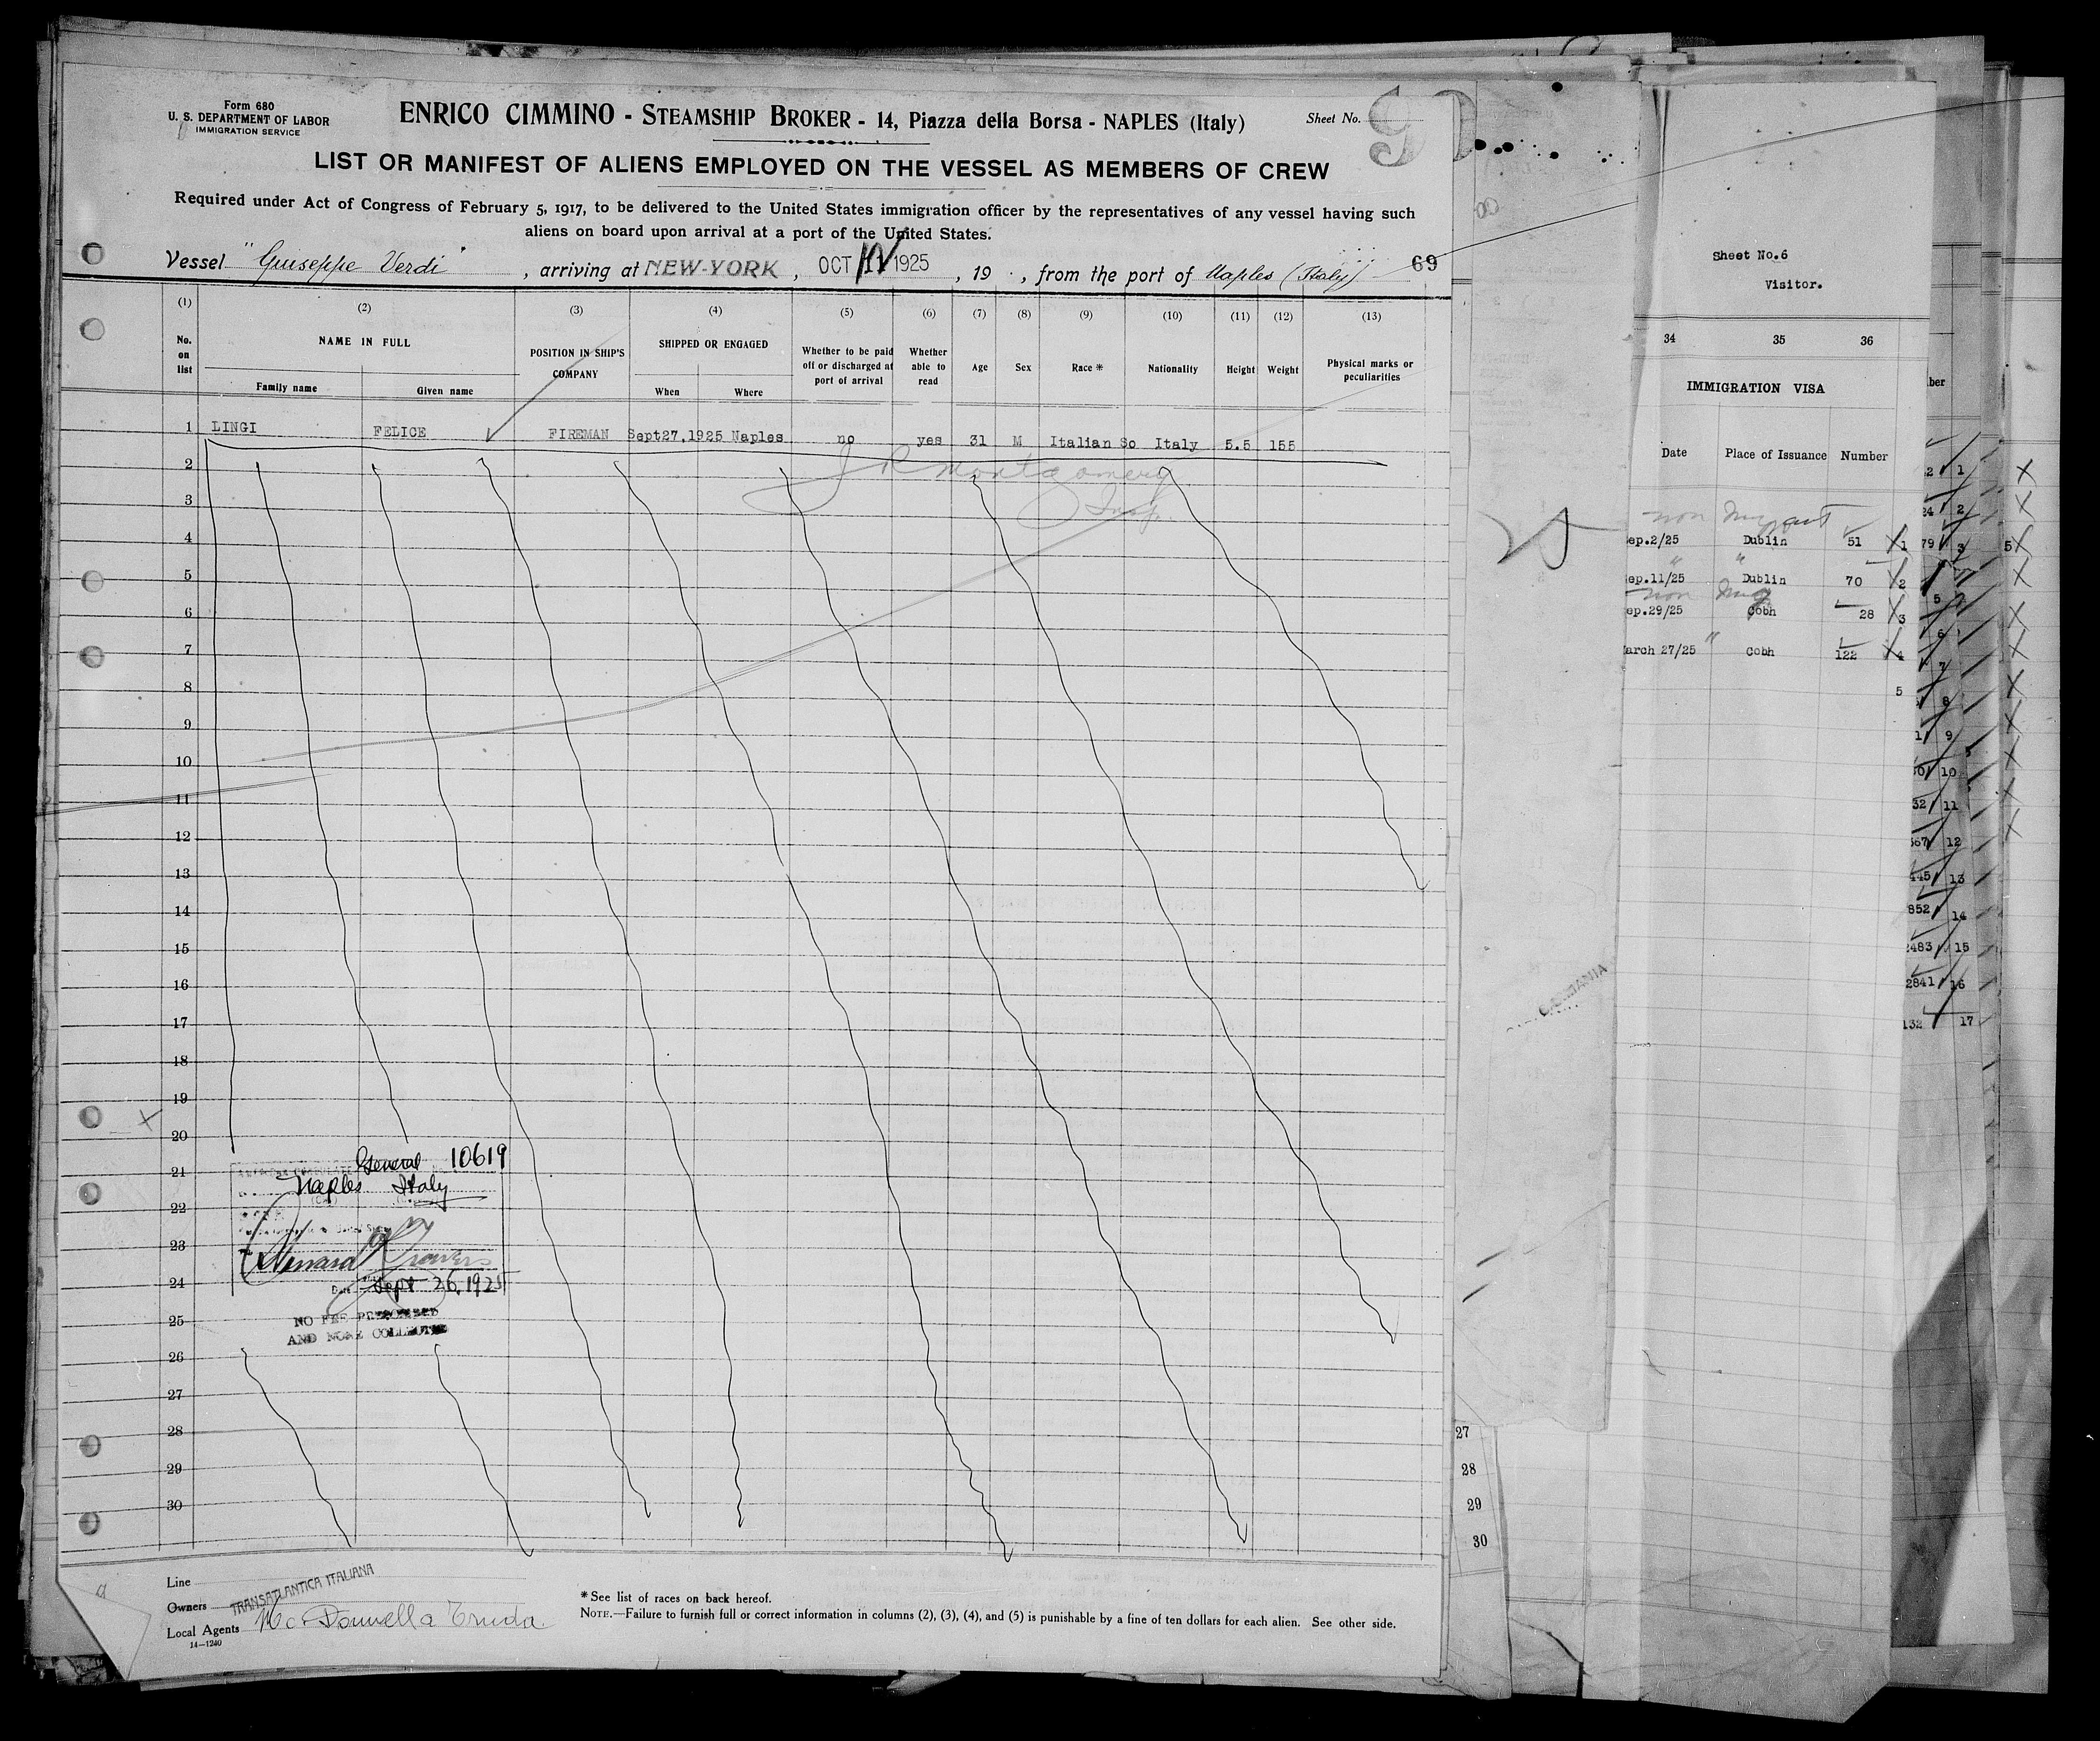 Form 680
U. S. DEPARTMENT OF LABOR
IMMIGRATION SERVICE
ENRICO CIMMINO - STEAMSHIP BROKER - 14, Piazza della Borsa - NAPLES (Italy)
Sheet No.
LIST OR MANIFEST OF ALIENS EMPLOYED ON THE VESSEL AS MEMBERS OF CREW
Required under Act of Congress of February 5, 1917, to be delivered to the United States immigration officer by the representatives of any vessel having such
aliens on board upon arrival at a port of the United States.
Vessel "Giuseppe Verdi" , arriving at NEW-YORK , OCT 1925 , 19 , from the port of Naples (Italy) 69
(1) (2) (3) (4) (5) (6) (7) (8) (9) (10) (11) (12) (13)
No. on list
NAME IN FULL
Family name
Given name
POSITION IN SHIP'S COMPANY
SHIPPED OR ENGAGED
When
Where
Whether to be paid off or discharged at port of arrival
Whether able to read
Age
Sex
Race *
Nationality
Height
Weight
Physical marks or peculiarities
1 LINGI FELICE FIREMAN Sept27,1925 Naples no yes 31 M Italian So Italy 5.5 155
2
J R Montgomery
3
Insp.
4
5
6
7
8
9
10
11
12
13
14
15
16
17
18
19
20
General 10619
21
Naples Italy
22
23
24
Date Sept 26, 1925
25
NO FEE PRESCRIBED
AND NONE COLLECTED
26
27
28
29
30
Line
Owners TRANSATLANTICA ITALIANA
Local Agents
14—1240
*See list of races on back hereof.
NOTE.—Failure to furnish full or correct information in columns (2), (3), (4), and (5) is punishable by a fine of ten dollars for each alien. See other side.
27
28
29
30
Sheet No.6
Visitor.
34 35 36
IMMIGRATION VISA
Date Place of Issuance Number
ep.2/25 Dublin 51 1
ep.11/25 Dublin 70 2
ep.29/25 Cobh 28 3
arch 27/25 " Cobh 122 4
5
ber
1
24 2
79 3
5
6
7
8
9
10
32 11
567 12
445 13
852 14
2483 15
2841 16
132 17